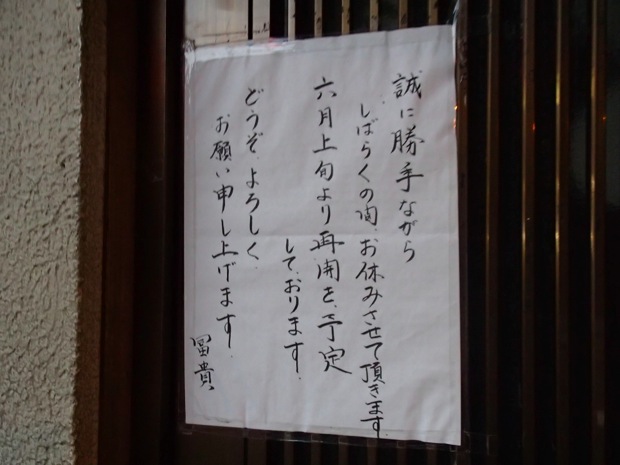 誠に勝手ながら
しばらくの間、お休みさせて頂きます
六月上旬より再開を予定
しております。
どうぞ、よろしく
お願い申し上げます。
冨貴